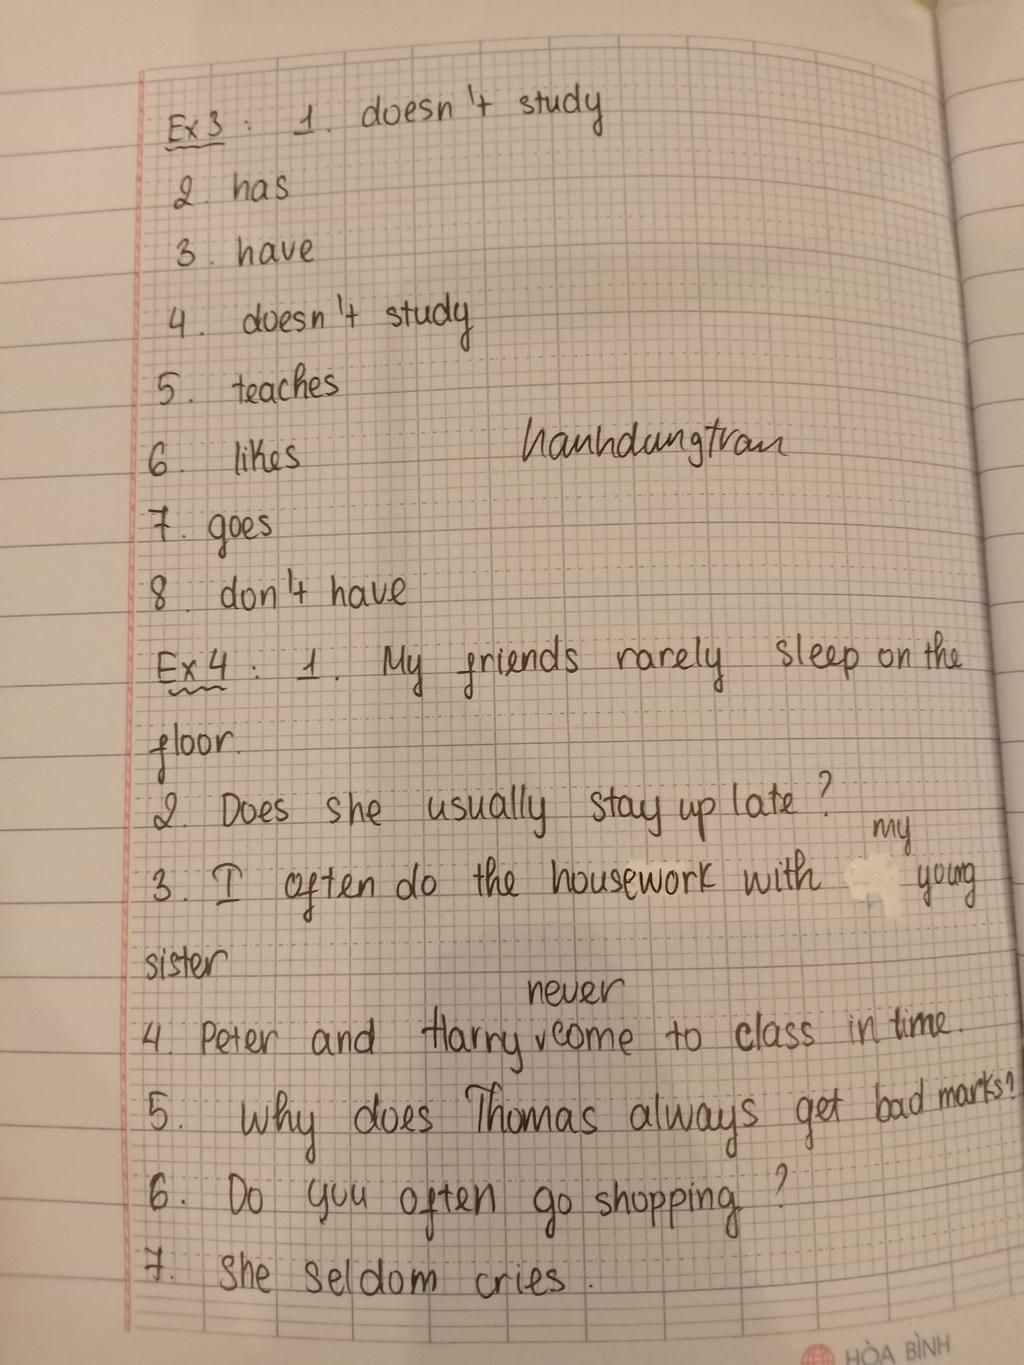 Ex 3 : 1. doesn't study
2. has
3. have
4. doesn't study
5. teaches
6. likes
hanhdungtran
7. goes
8. don't have
Ex 4 : 1. My friends rarely sleep on the
floor.
2. Does she usually stay up late ?
my
3. I often do the housework with young
sister
never
4. Peter and Harry come to class in time.
5. Why does Thomas always get bad marks?
6. Do you often go shopping ?
7. She seldom cries.
HÒA BÌNH